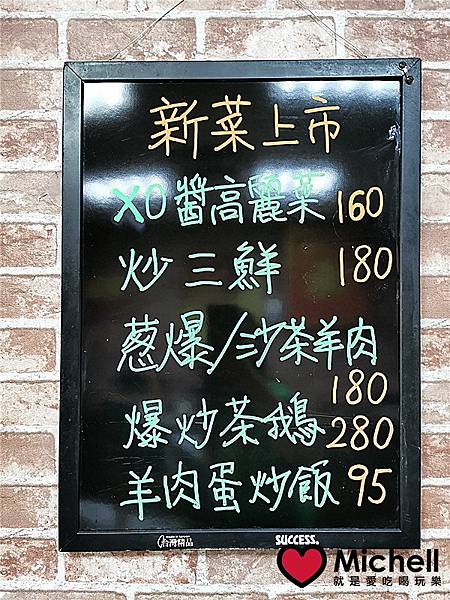 新菜上市
XO醬高麗菜 160
炒三鮮 180
蔥爆/沙茶羊肉
180
爆炒茶鵝 280
羊肉蛋炒飯 95
台灣精品
SUCCESS®
Michell
就是愛吃喝玩樂